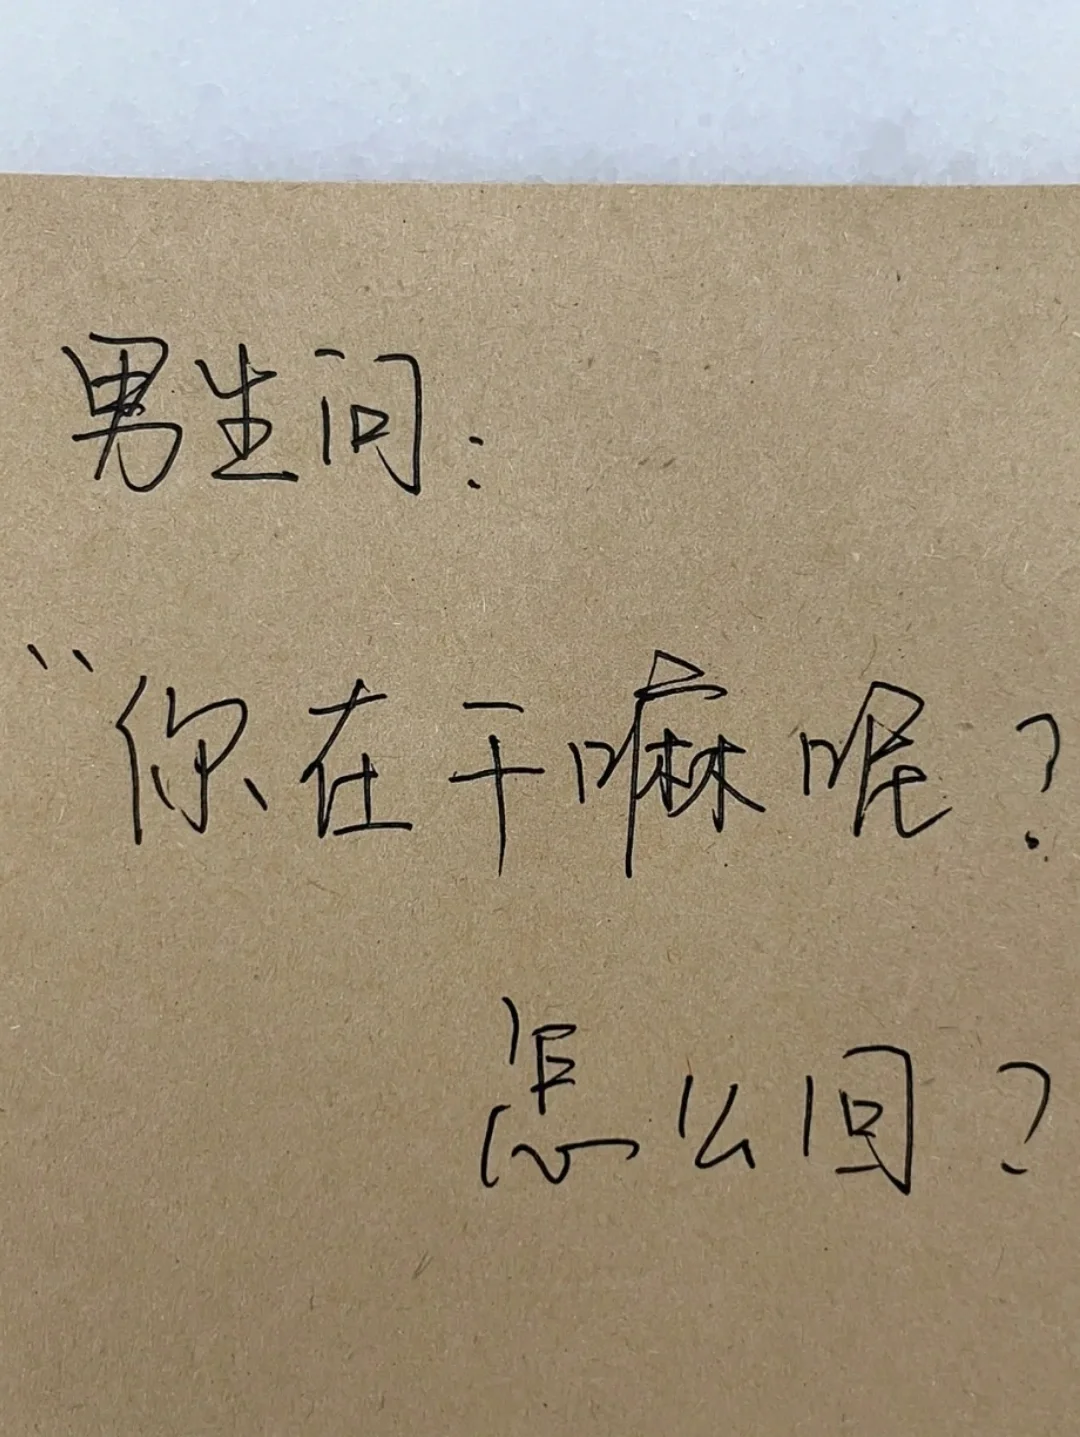 男生问：
“你在干嘛呢？
怎么回？